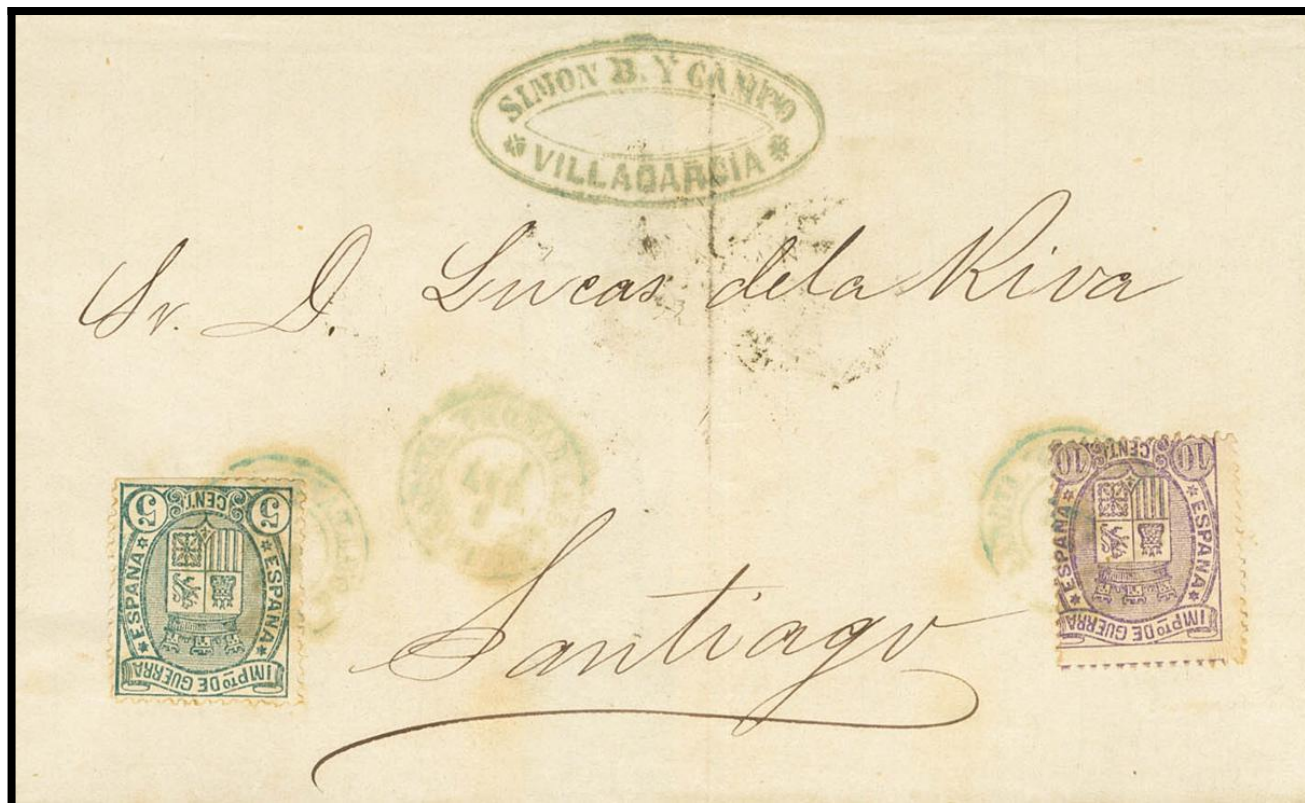 SIMON B. Y CAMPO
VILLAGARCIA
Sr. D. Lucas dela Riva
Santiago
5 CENT. 5
ESPAÑA ESPAÑA
IMPTO DE GUERRA
10 CENT. 10
ESPAÑA ESPAÑA
IMPTO DE GUERRA